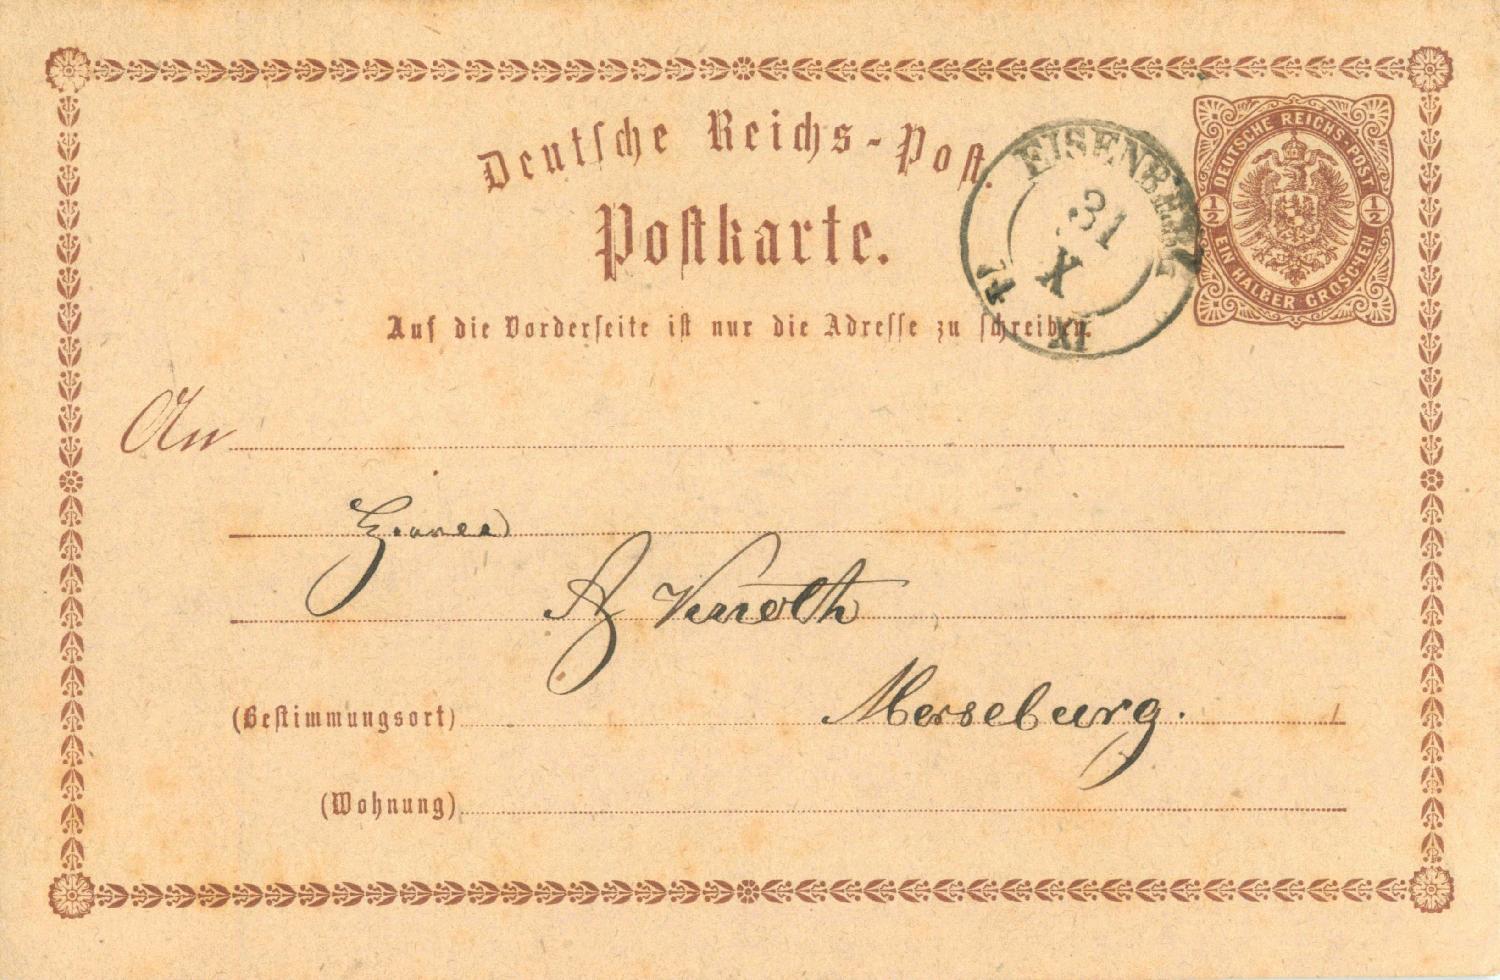 Deutsche Reichs-Post.
Postkarte.
Auf die Vorderseite ist nur die Adresse zu schreiben.
EISENBERG
31
X
XI
74
DEUTSCHE REICHS-POST
1/2
1/2
EIN HALBER GROSCHEN
An
Merseburg.
(Bestimmungsort)
(Wohnung)